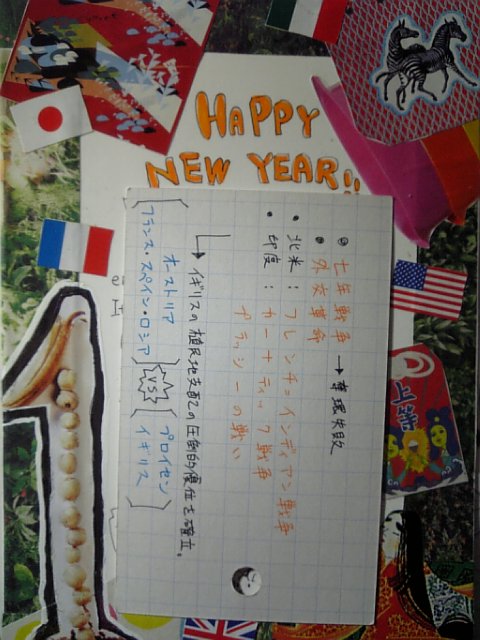 HAPPY
NEW YEAR!!
七年戦争 → 奪還失敗
外交革命
・北米：フレンチ=インディアン戦争
・印度：カーナティック戦争
プラッシーの戦い
→ イギリスの植民地支配の圧倒的優位を確立。
オーストリア
フランス・スペイン・ロシア
VS
プロイセン
イギリス
上等